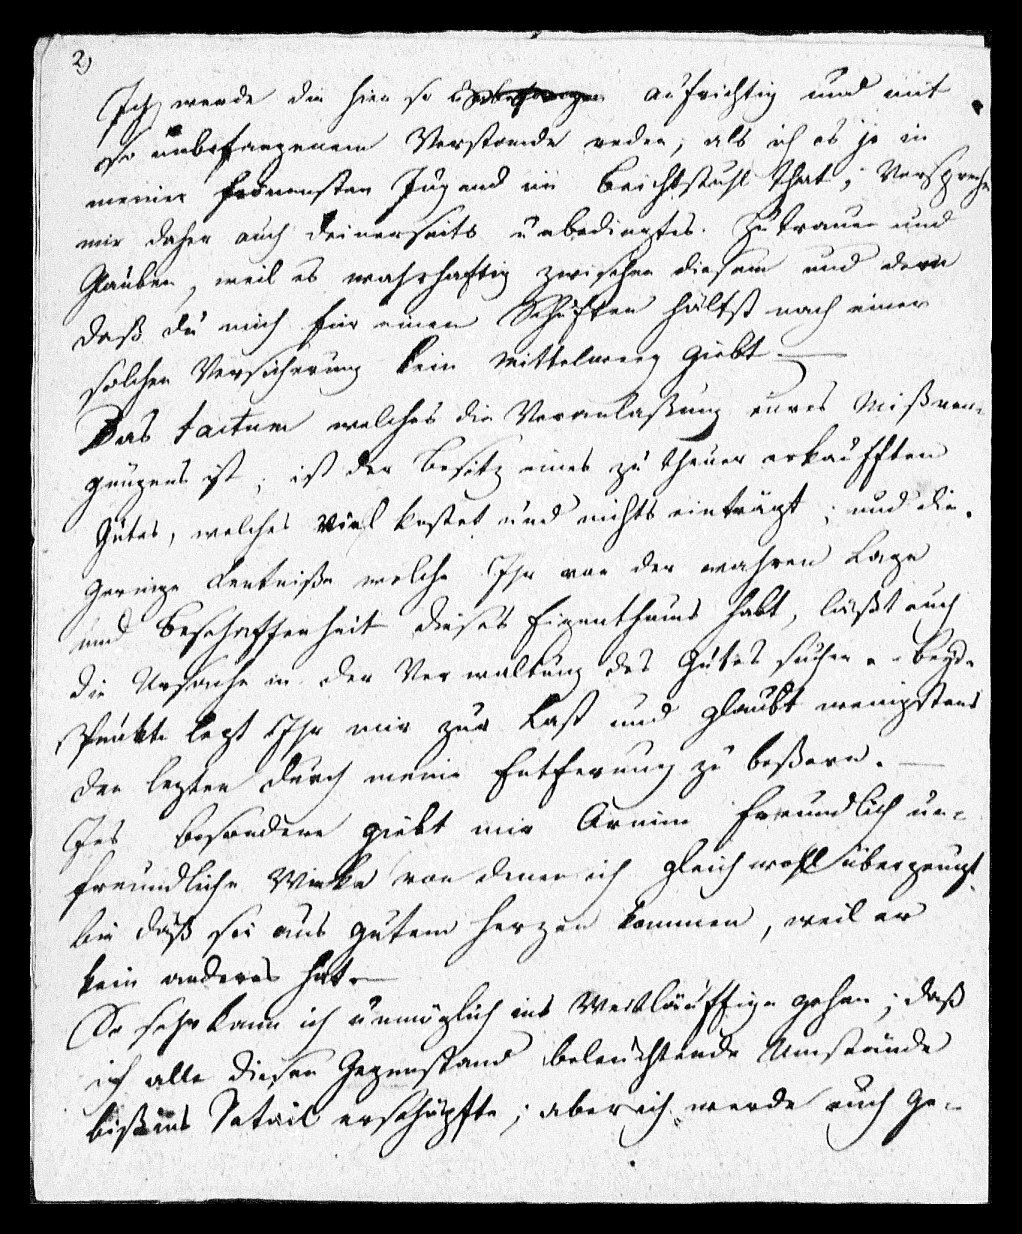 2)
Ich werde dir hier so aufrichtig und mit
so unbefangenem Verstande reden, als ich es je in
meiner frömmsten Jugend im Beichtstuhl that, Verspreche
mir daher auch deinerseits unbedingtes Zutrauen und
Glauben, weil es wahrhaftig zwischen diesem und dem
daß du mich für einen Schuften hältst nach einer
solchen Versicherung kein Mittelweeg giebt —
Das factum welches die Veranlaßung eures Mißver-
gnügens ist, ist der Besitz eines zu theuer erkaufften
Gutes, welches viel kostet und nichts einträgt; und die
geringe Kentniße welche Ihr von der wahren Lage
und Beschaffenheit dieses Eigenthums habt, läßt euch
die Ursache in der Verwaltung des Gutes suchen. beyde
Punkte legt Ihr mir zur Last und glaubt wenigstens
den lezten durch meine Entfernung zu beßern. —
Ins besondere giebt mir Arnim freundlich un-
freundliche Winke von denen ich gleichwohl überzeugt
bin daß sie aus gutem Herzen kommen, weil er
kein anderes hat. —
So sehr kann ich unmöglich ins Weitläuffige gehen; daß
ich alle diesen Gegenstand beleuchtende Umstände
biß ins Detail erschöpfte; aber ich werde auch ge-